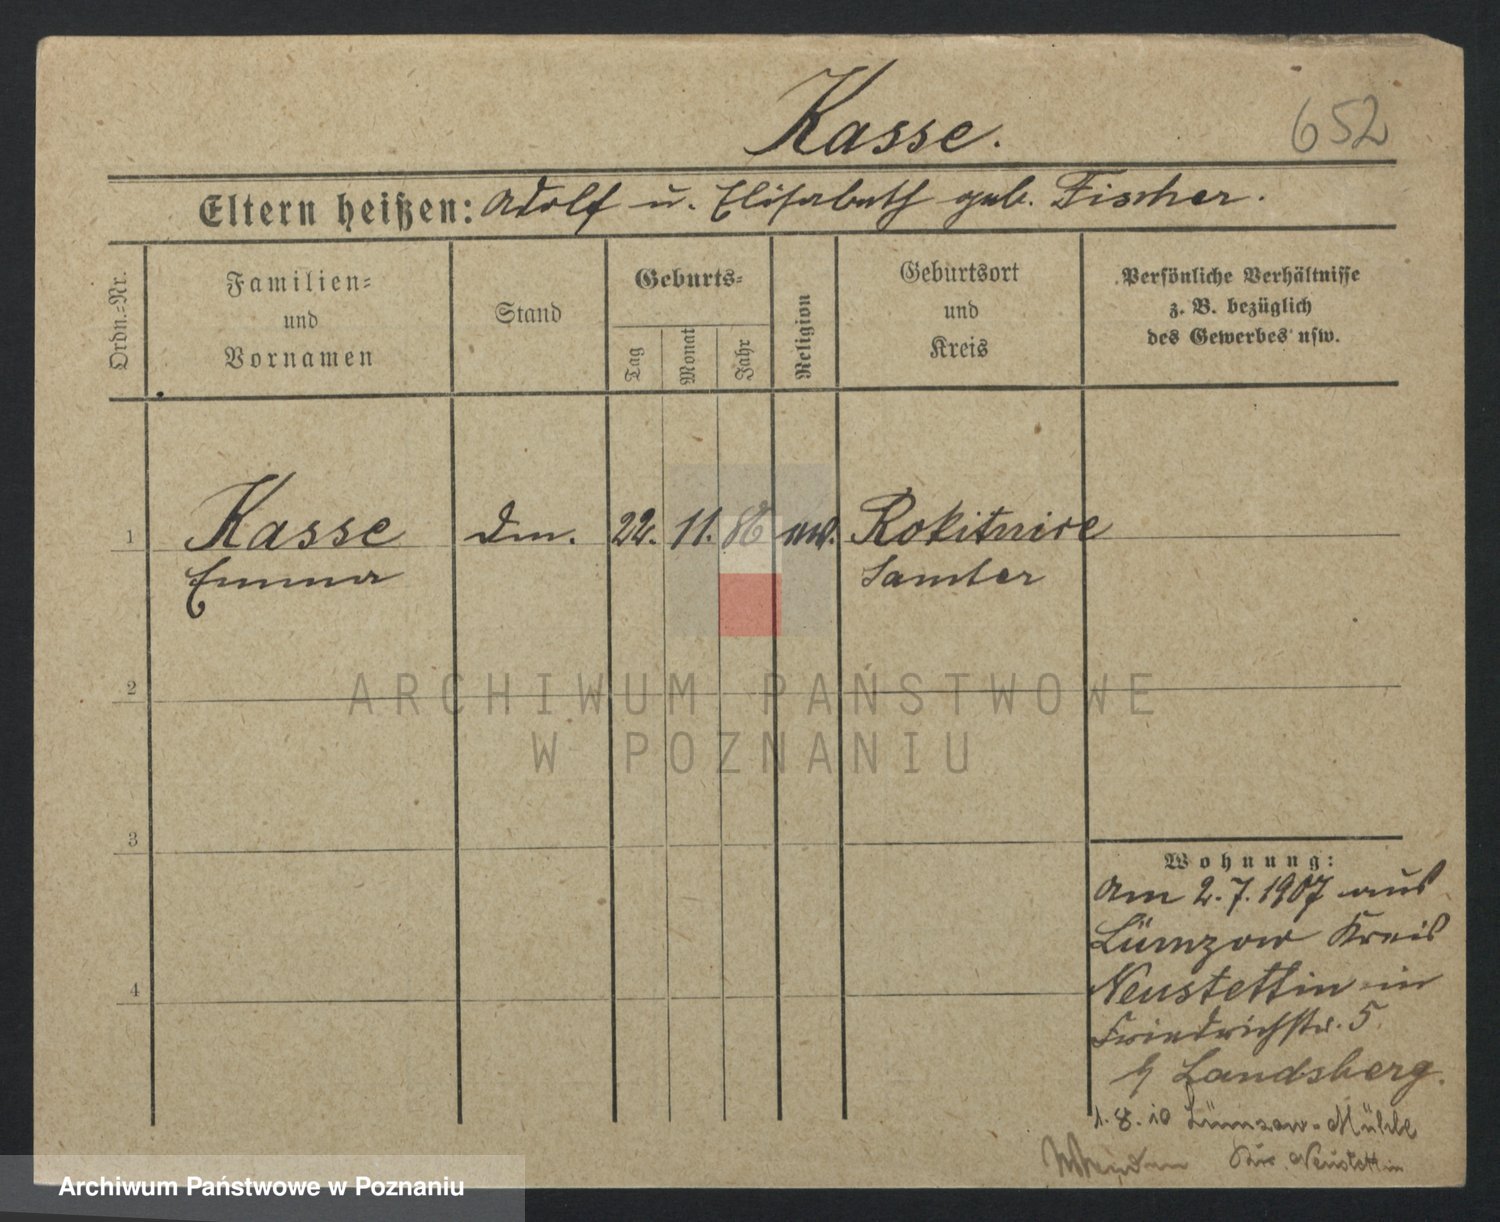 Kasse.
652
Eltern heißen: Adolf u. Elisabeth geb. Fischer.
Ordn.=Nr.
Familien=
und
Vornamen
Stand
Geburts=
Tag
Monat
Jahr
Religion
Geburtsort
und
Kreis
Persönliche Verhältnisse
z. B. bezüglich
des Gewerbes usw.
1 Kasse 22. 11. 86 Rokitnice
Emma Samter
2
ARCHIWUM PAŃSTWOWE
W POZNANIU
3
4
Wohnung:
Am 2.7.1907 aus
Lümzow Kreis
Neustettin in
Friedrichstr. 5
Landsberg.
1.8.10 Lümzow-Mühle
Neustettin
Archiwum Państwowe w Poznaniu